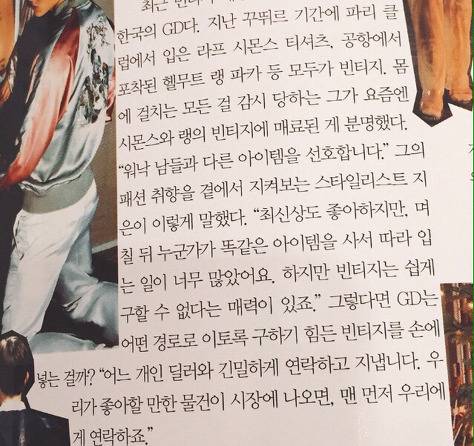 최근
한국의 GD다. 지난 꾸뛰르 기간에 파리 클
럽에서 입은 라프 시몬스 티셔츠, 공항에서
포착된 헬무트 랭 파카 등 모두가 빈티지. 몸
에 걸치는 모든 걸 감시 당하는 그가 요즘엔
시몬스와 랭의 빈티지에 매료된 게 분명했다.
“워낙 남들과 다른 아이템을 선호합니다.” 그의
패션 취향을 곁에서 지켜보는 스타일리스트 지
은이 이렇게 말했다. “최신상도 좋아하지만, 며
칠 뒤 누군가가 똑같은 아이템을 사서 따라 입
는 일이 너무 많았어요. 하지만 빈티지는 쉽게
구할 수 없다는 매력이 있죠.” 그렇다면 GD는
어떤 경로로 이토록 구하기 힘든 빈티지를 손에
넣는 걸까? “어느 개인 딜러와 긴밀하게 연락하고 지냅니다. 우
리가 좋아할 만한 물건이 시장에 나오면, 맨 먼저 우리에
게 연락하죠.”